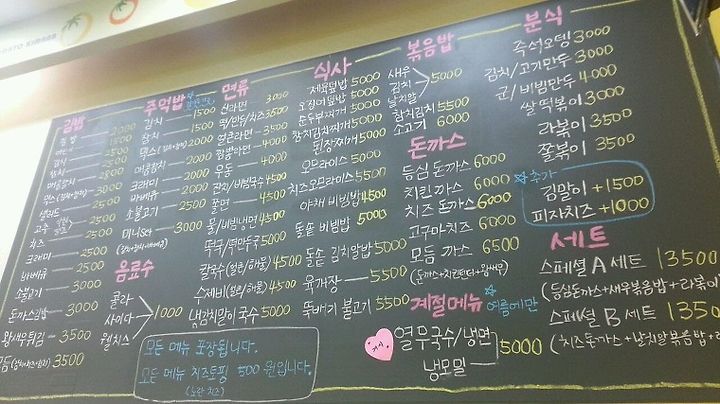 김밥
김밥 2000
김치 2500
참치 2500
매콤참치 2800
샐러드 2500
치즈 2500
크래미 2500
바베큐 2500
소불고기 3000
돈까스김밥 3000
왕새우튀김 3500
모듬(김치+치즈+참치) 3500
주먹밥
참치 1500
김치 1500
매콤참치 2000
크래미 2000
바베큐 2000
소불고기 2000
미니set 3000
음료수
콜라
사이다
웰치스
1000
면류
신라면 3000
떡/만두/치즈 3500
얼큰라면 3500
짬뽕라면 4000
우동 4000
잔치/비빔국수 4500
쫄면 4500
물/비빔냉면 4500
떡국/떡만두국 5000
칼국수(얼큰/해물) 4500
수제비(얼큰/해물) 4500
냉김치말이국수 5000
식사
제육덮밥 5000
오징어덮밥 5000
순두부찌개 5000
참치김치찌개 5000
된장찌개 5000
오므라이스 5000
치즈오므라이스 5500
야채 비빔밥 4500
돌솥 비빔밥 5000
돌솥 김치알밥 5000
육개장 5500
뚝배기 불고기 5500
볶음밥
새우
김치
날치알
5000
참치김치 5500
소고기 6000
돈까스
등심 돈까스 6000
치킨 까스 6000
치즈 돈까스 6000
고구마치즈 6000
모듬 까스 6500
(돈까스+치킨텐더+왕새우)
계절메뉴 여름에만
열무국수/냉면
냉모밀
5000
분식
즉석오뎅 3000
김치/고기만두 3000
군/비빔만두 4000
쌀떡볶이 3000
라볶이 3500
쫄볶이 3500
추가
김말이 +1500
피자치즈 +1000
세트
스페셜 A 세트 13500
(등심돈까스+새우볶음밥+라볶이
스페셜 B 세트 1350
(치즈돈가스+날치알볶음밥+
모든 메뉴 포장됩니다.
모든 메뉴 치즈토핑 500원입니다.
(노란 치즈)